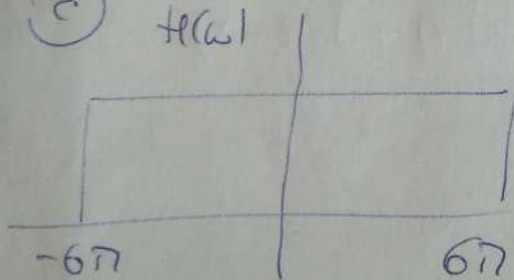 C H(ω)
-6π 6π